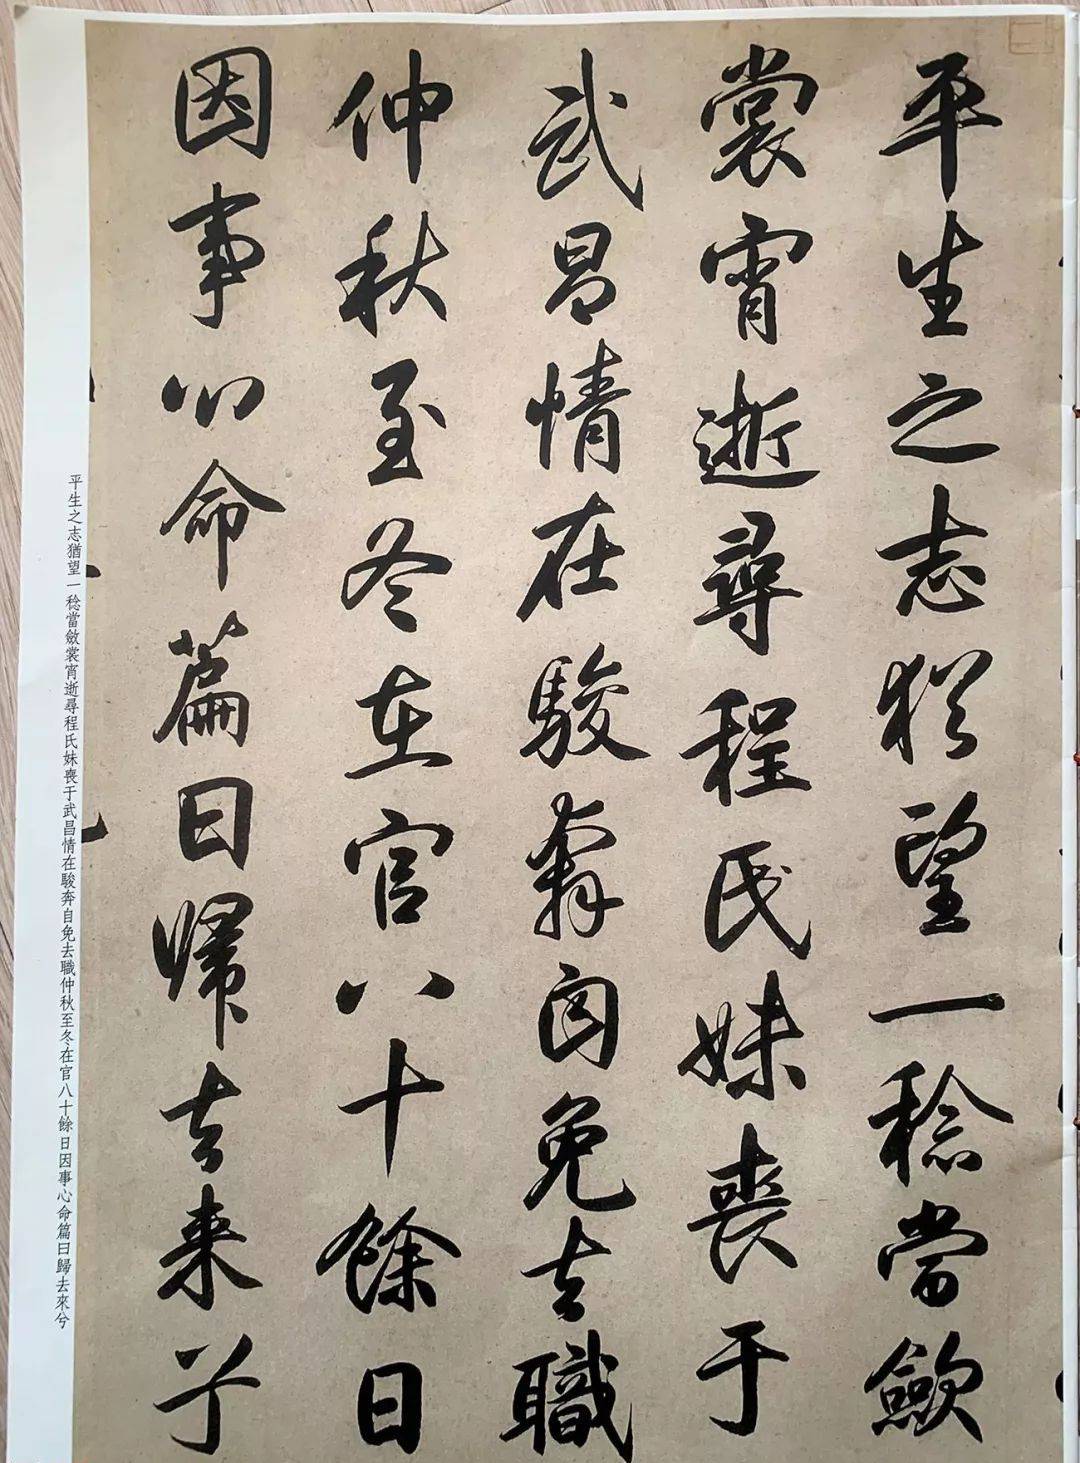 平生之志猶望一稔當斂
裳宵逝尋程氏妹喪于
武昌情在駿奔自免去職
仲秋至冬在官八十餘日
因事心命篇曰歸去来兮
平生之志猶望一稔當斂裳宵逝尋程氏妹喪于武昌情在駿奔自免去職仲秋至冬在官八十餘日因事心命篇曰歸去來兮